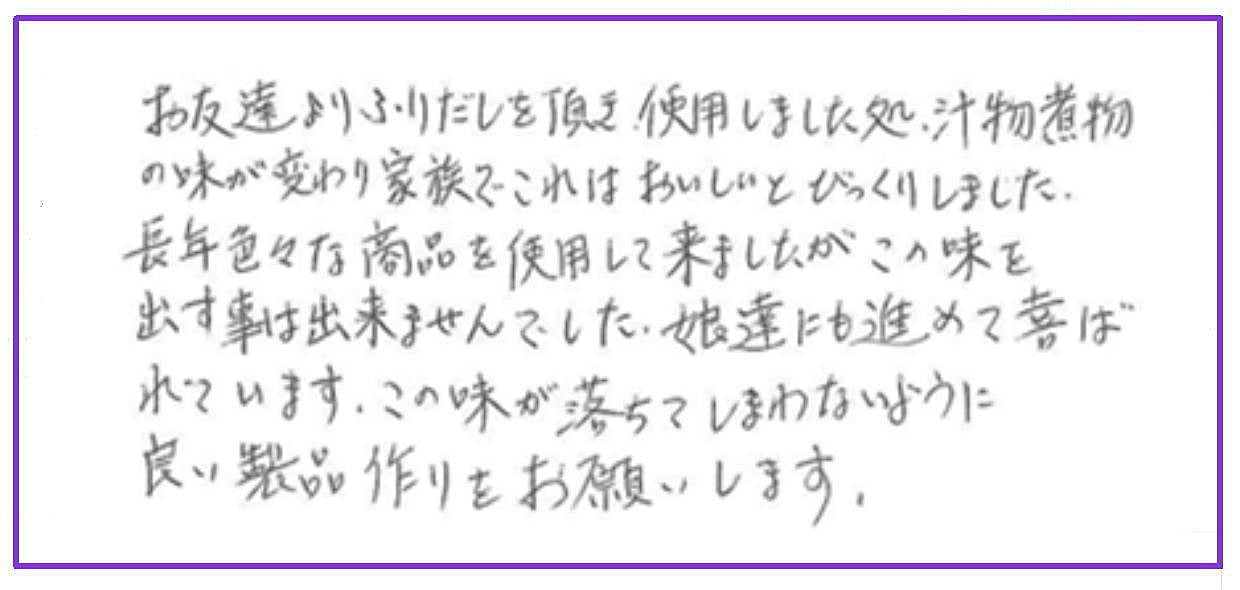 お友達よりふりだしを頂き、使用しました処、汁物煮物
の味が変わり家族でこれはおいしいとびっくりしました。
長年色々な商品を使用して来ましたがこの味を
出す事は出来ませんでした。娘達にも進めて喜ば
れています。この味が落ちてしまわないように
良い製品作りをお願いします。